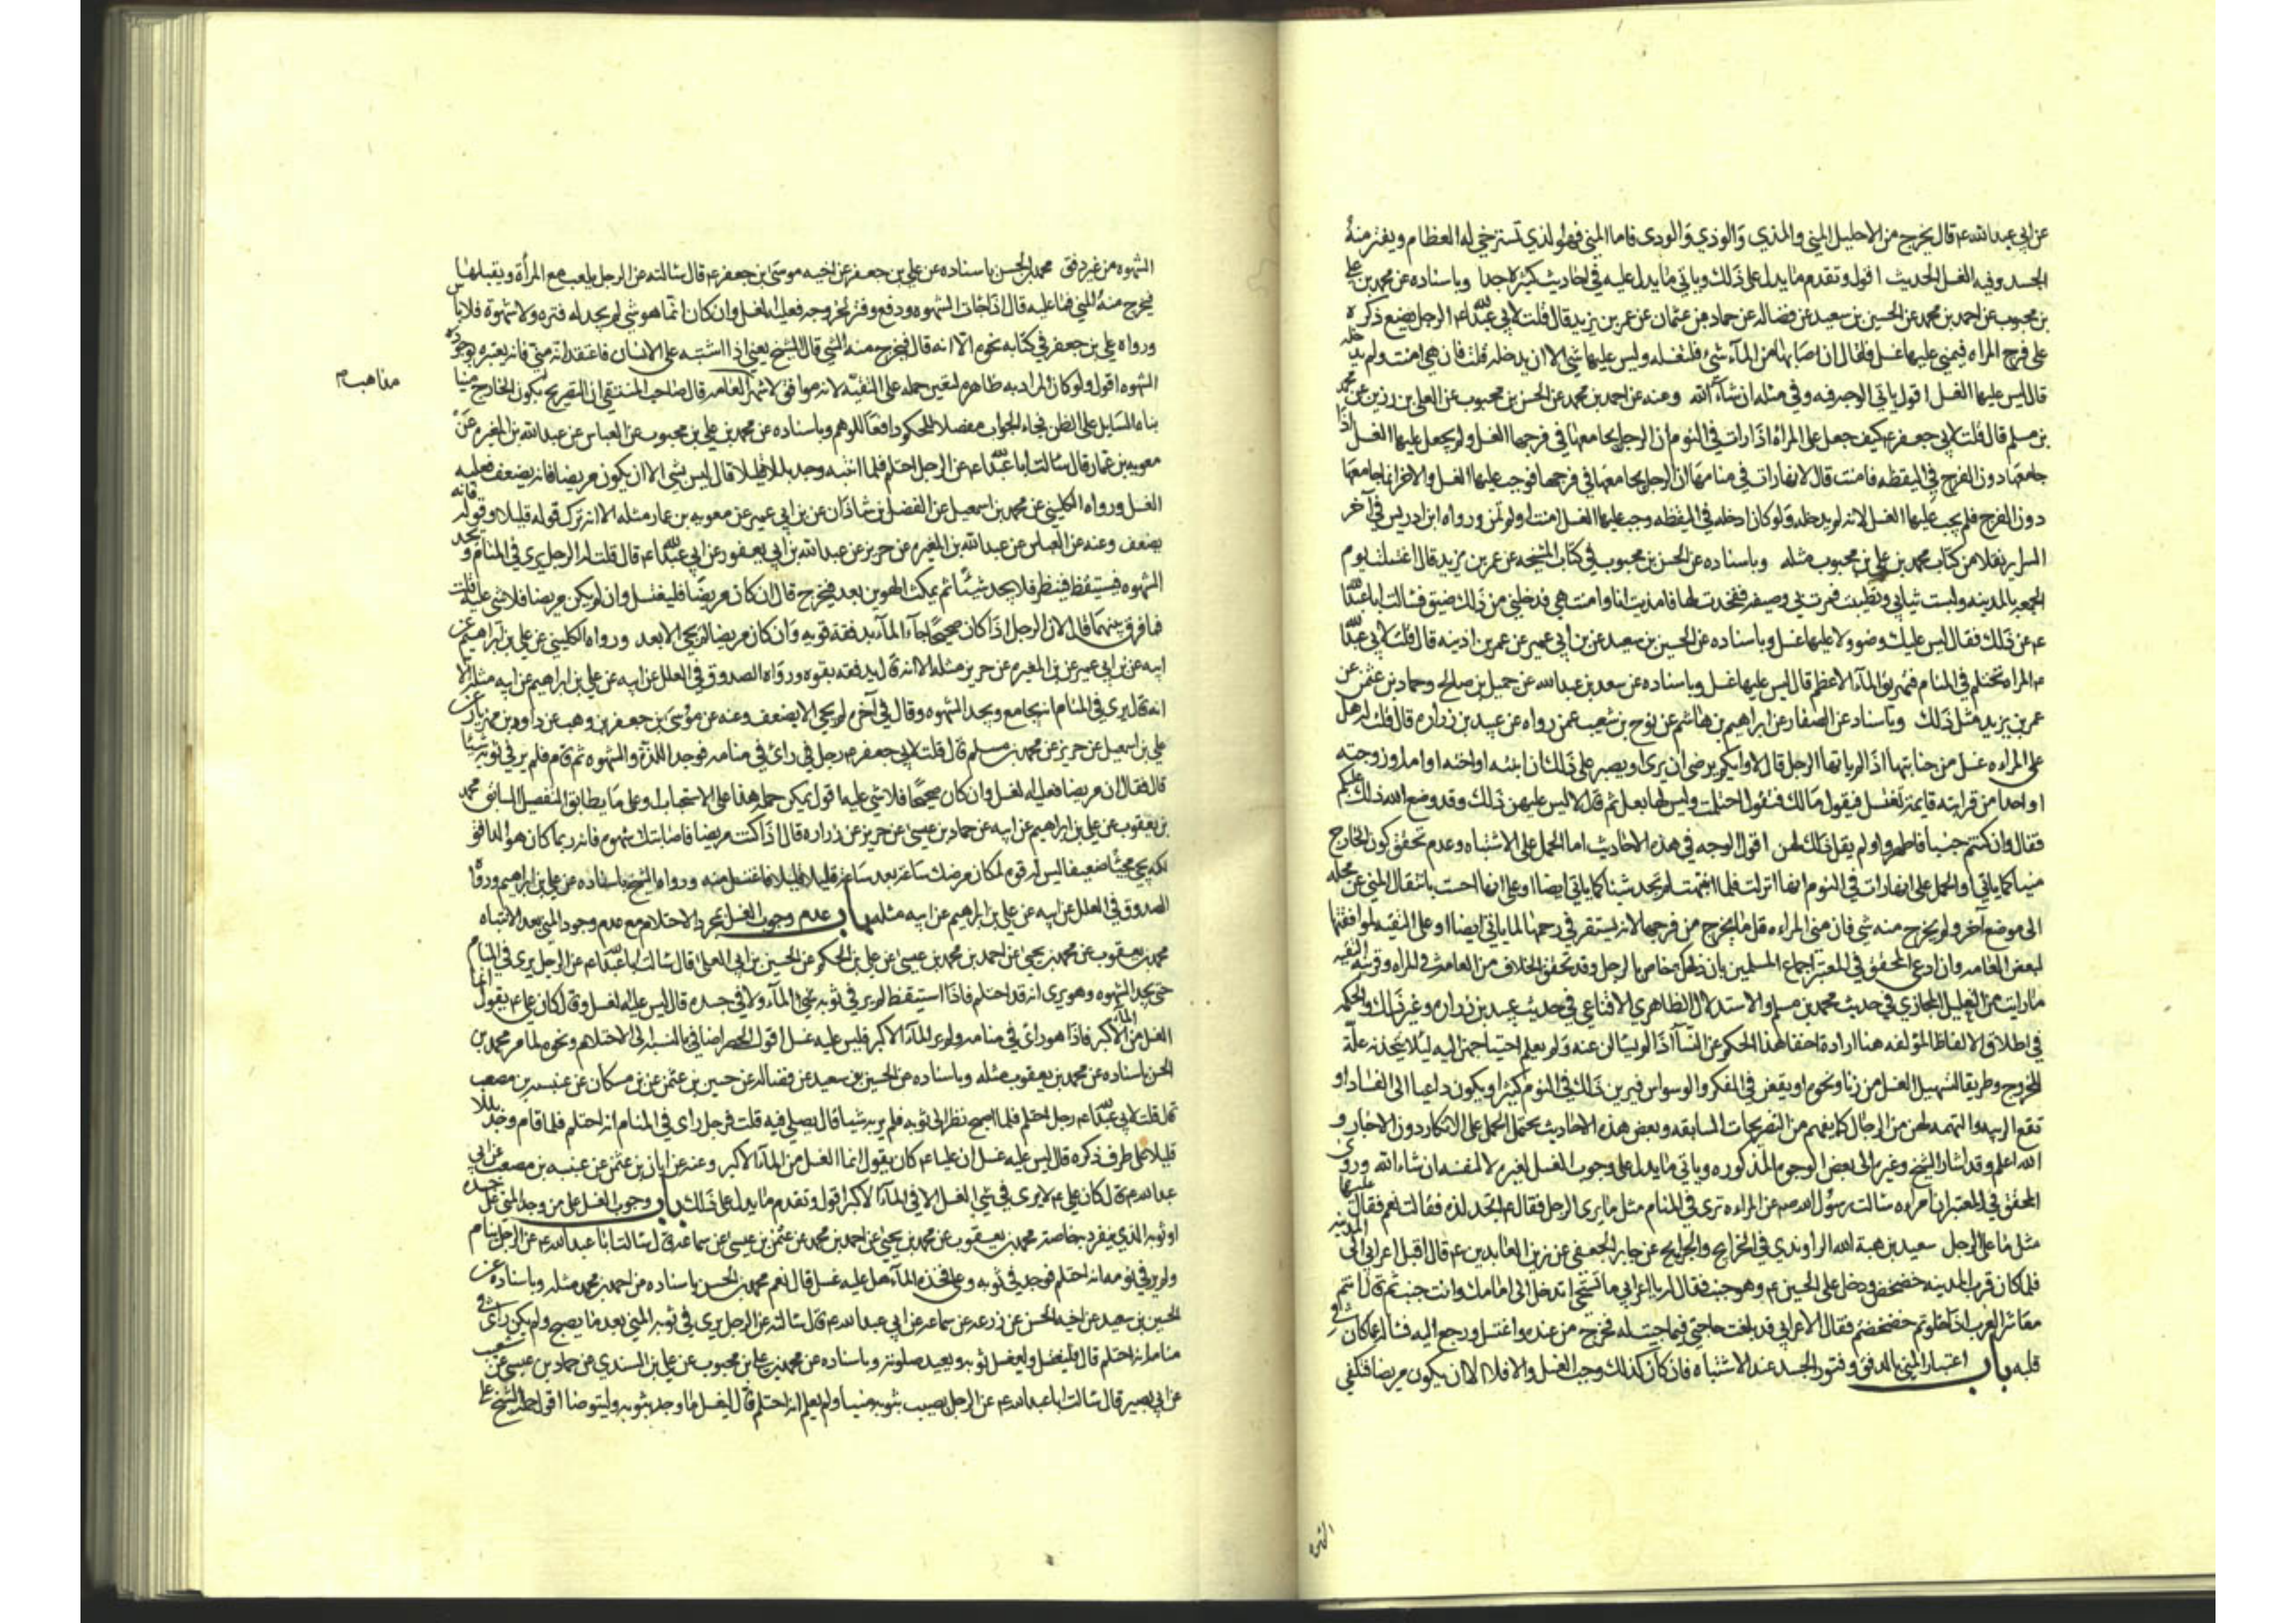 عن ابي عبد الله ع قال يخرج من الاحليل المني والمذي والوذي والودي فاما المني فهو الذي تسترخي له العظام ويفتر منه
الجسد وفيه الغسل الحديث اقول وتقدم ما يدل على ذلك وياتي ما يدل عليه في احاديث كثيرة جدا وباسناده عن محمد بن علي
بن محبوب عن احمد بن محمد عن الحسين بن سعيد عن فضاله عن حماد بن عثمان عن عمر بن يزيد قال قلت لابي عبد الله ع الرجل يضع ذكره
على فرج المراه فيمني عليها غسل فقال ان اصابها من المآء شئ فلتغسله وليس عليها شئ الا ان يدخله قلت فان هي امنت ولم يدخله
قال ليس عليها الغسل اقول ياتي الوجه فيه وفي مثله ان شآء الله وعنه عن احمد بن محمد عن الحسن بن محبوب عن العلا بن رزين عن محمد
بن مسلم قال قلت لابي جعفر ع كيف جعل على المراة اذا رات في النوم ان الرجل يجامعها في فرجها الغسل ولم يجعل عليها الغسل اذا
جامعها دون الفرج في اليقظه فامنت قال لانها رات في منامها ان الرجل يجامعها في فرجها فوجب عليها الغسل والاخر انما جامعها
دون الفرج فلم يجب عليها الغسل لانه لم يدخله ولو كان ادخله في اليقظه وجب عليها الغسل امنت او لم تمن ورواه ابن ادريس في آخر
السراير نقلا من كتاب محمد بن علي بن محبوب مثله وباسناده عن الحسن بن محبوب في كتاب المشيخه عن عمر بن يزيد قال اغتسلت يوم
الجمعه بالمدينه ولبست ثيابي وتطيبت فمرت بي وصيفه ففخذت لها فامذيت انا وامنت هي فدخلني من ذلك ضيق فسالت ابا عبد الله
ع عن ذلك فقال ليس عليك وضوء ولا عليها غسل وباسناده عن الحسين بن سعيد عن بن ابي عمير عن عمر بن اذينه قال قلت لابي عبد الله
ع المراه تحتلم في المنام فتهريق المآء الاعظم قال ليس عليها غسل وباسناده عن سعد بن عبد الله عن جميل بن صالح وحماد بن عثمن عن
عمر بن يزيد مثل ذلك وباسناده عن الصفار عن ابراهيم بن هاشم عن نوح بن شعيب عمن رواه عن عبيد بن زراره قال قلت له هل
على المراه غسل من جنابتها اذا لم ياتها الرجل قال لا وايكم يرضى ان يرى او يصبر على ذلك ان يرى ابنته او اخته او امه او زوجته
او احدا من قرابته قايمة تغتسل فيقول مالك فتقول احتلمت وليس لها بعل ثم قال لا ليس عليهن ذلك وقد وضع الله ذلك عليكم
فقال وان كنتم جنبا فاطهروا ولم يقل ذلك لهن اقول الوجه في هذه الاحاديث اما الحمل على الاشتباه وعدم تحقق كون الخارج
منيا كما ياتي او الحمل على انها رات في النوم انها انزلت فلما انتبهت لم تجد شيئا كما ياتي ايضا او على انها احست بانتقال المني عن محله
الى موضع آخر ولم يخرج منه شي فان مني المراه قل ما يخرج من فرجها لانه يستقر في رحمها لما ياتي ايضا او على التقيه لموافقتها
لبعض العامه وان ادعى المحقق في المعتبر اجماع المسلمين فان ذلك خاص بالرجل وقد تحقق الخلاف من العامه في المراه وقرينة التقيه
ما رايت من التعليل المجازي في حديث محمد بن مسلم والاستدلال الظاهري الاقناعي في حديث عبيد بن زراره وغير ذلك والحكمه
في اطلاق الالفاظ المؤلفه هنا ارادة اخفاء هذا الحكم عن النسآء اذا لم يسالن عنه ولم يعلم احتياجهن اليه ليلا يتخذنه علة
للخروج وطريقا لتسهيل الغسل من زنا ونحوه او يقعن في الفكر والوسواس فيرين ذلك في النوم كثيرا ويكون داعيا الى الفساد او
تقع الريبه والتهمه لهن من الرجال كما يفهم من التصريحات السابقه وبعض هذه الاحاديث يحتمل الحمل على الانكار دون الاخبار و
الله اعلم وقد اشار الشيخ وغيره الى بعض الوجوه المذكوره وياتي ما يدل على وجوب الغسل لغيره لا لنفسه ان شاء الله وروى
المحقق في المعتبر ان امراه سالت رسول الله ص عن المراه ترى في المنام مثل ما يرى الرجل فقال ع اتجد لذه فقالت نعم فقال عليها
مثل ما على الرجل سعيد بن هبة الله الراوندي في الخرايج والجرايح عن جابر الجعفي عن زين العابدين ع قال اقبل اعرابي الى المدينه
فلما كان قرب المدينه خضخض ودخل على الحسين ع وهو جنب فقال له يا اعرابي ما تستحي اتدخل الى امامك وانت جنب ثم قال انتم
معاشر العرب اذا خلوتم خضخضتم فقال الاعرابي قد بلغت حاجتي فيما جيت له فخرج من عنده واغتسل ورجع اليه فساله عما كان في
قلبه باب اعتبار المني بالدفق وفتور الجسد عند الاشتباه فان كان كذلك وجب الغسل والا فلا الا ان يكون مريضا فتكفي
الشهوه
الشهوه من غير دفق محمد بن الحسن باسناده عن علي بن جعفر عن اخيه موسى بن جعفر ع قال سالته عن الرجل يلعب مع المرأة ويقبلها
فيخرج منه المني فما عليه قال اذا جات الشهوه ودفع وفتر لخروجه فعليه الغسل وان كان انما هو شئ لم يجد له فتره ولا شهوة فلا باس
ورواه علي بن جعفر في كتابه نحوه الا انه قال فيخرج منه الشي قال الشيخ يعني اذا اشتبه على الانسان فاعتقد انه مني فانه يعتبره بوجود
الشهوه اقول ولو كان المراد به ظاهره لتعين حمله على التقيه لانه موافق لاشهر العامه قال صاحب المنتقى ان التصريح بكون الخارج منيا
مذاهب م
بناه السايل على الظن فجاء الجواب مفصلا للحكم دافعا للوهم وباسناده عن محمد بن علي بن محبوب عن العباس عن عبد الله بن المغيره عن
معويه بن عمار قال سالت ابا عبد الله ع عن الرجل احتلم فلما انتبه وجد بللا قليلا قال ليس بشئ الا ان يكون مريضا فانه يضعف فعليه
الغسل ورواه الكليني عن محمد بن اسمعيل عن الفضل بن شاذان عن بن ابي عمير عن معويه بن عمار مثله الا انه ترك قوله قليلا وقوله فانه
يضعف وعنه عن العباس عن عبد الله بن المغيره عن حريز عن عبد الله بن ابي يعفور عن ابي عبد الله ع قال قلت له الرجل يرى في المنام ويجد
الشهوه فيستيقظ فينظر فلا يجد شيئا ثم يمكث الهوين بعد فيخرج قال ان كان مريضا فليغتسل وان لم يكن مريضا فلا شئ عليه قلت
فما فرق بينهما قال لان الرجل اذا كان صحيحا جاء المآء بدفقة قويه وان كان مريضا لم يجئ الا بعد ورواه الكليني عن علي بن ابراهيم عن
ابيه عن بن ابي عمير عن بن المغيره عن حريز مثله الا انه قال بدفقه بقوه ورواه الصدوق في العلل عن ابيه عن علي بن ابراهيم عن ابيه مثله الا
انه قال يرى في المنام انه يجامع ويجد الشهوه وقال في آخره لم يجئ الا بضعف وعنه عن موسى بن جعفر بن وهب عن داود بن مهزيار عن
علي بن اسمعيل عن حريز عن محمد بن مسلم قال قلت لابي جعفر ع رجل رأى في منامه فوجد اللذة والشهوه ثم قام فلم ير في ثوبه شيئا
قال فقال ان كان مريضا فعليه الغسل وان كان صحيحا فلا شئ عليه اقول يمكن حمل هذا على الاستحباب وعلى ما يطابق التفصيل السابق محمد
بن يعقوب عن علي بن ابراهيم عن ابيه عن حماد بن عيسى عن حريز عن زراره قال اذا كنت مريضا فاصابتك شهوه فانه ربما كان هو الدافق
لكنه يجئ مجيئا ضعيفا ليس له قوه لمكان مرضك ساعة بعد ساعة قليلا قليلا فاغتسل منه ورواه الشيخ باسناده عن علي بن ابراهيم ورواه
الصدوق في العلل عن ابيه عن علي بن ابراهيم عن ابيه مثله باب عدم وجوب الغسل بمجرد الاحتلام مع عدم وجود المني بعد الانتباه
محمد بن يعقوب عن محمد بن يحيى عن احمد بن محمد بن عيسى عن علي بن الحكم عن الحسين بن ابي العلا قال سالت ابا عبد الله ع عن الرجل يرى في المنام
حتى يجد الشهوه وهو يرى انه قد احتلم فاذا استيقظ لم ير في ثوبه المآء ولا في جسده قال ليس عليه الغسل وقال كان علي ع يقول انما
الغسل من المآء الاكبر فاذا هو راى في منامه ولم ير المآء الاكبر فليس عليه غسل اقول الحصر اضافي بالنسبه الى الاحتلام ونحوه لما مر محمد بن
الحسن باسناده عن محمد بن يعقوب مثله وباسناده عن الحسين بن سعيد عن فضاله عن حسين بن عثمن عن بن مسكان عن عنبسه بن مصعب
قال قلت لابي عبد الله ع رجل احتلم فلما اصبح نظر الى ثوبه فلم ير به شيئا قال يصلي فيه قلت فرجل راى في المنام انه احتلم فلما قام وجد بللا
قليلا على طرف ذكره قال ليس عليه غسل ان عليا ع كان يقول انما الغسل من المآء الاكبر وعنه عن ابان بن عثمن عن عنبسه بن مصعب عن ابي
عبد الله ع قال كان علي ع لا يرى في شئ الغسل الا في المآء الاكبر اقول وتقدم ما يدل على ذلك باب وجوب الغسل على من وجد المني على جسده
او ثوبه الذي ينفرد به خاصة محمد بن يعقوب عن محمد بن يحيى عن احمد بن محمد عن عثمن بن عيسى عن سماعه قال سالت ابا عبد الله ع عن الرجل ينام
ولم ير في نومه انه احتلم فوجد في ثوبه وعلى فخذه المآء هل عليه غسل قال نعم محمد بن الحسن باسناده عن احمد بن محمد مثله وباسناده عن
الحسين بن سعيد عن اخيه الحسن عن زرعه عن سماعه عن ابي عبد الله ع قال سالته عن الرجل يرى في ثوبه المني بعد ما يصبح ولم يكن راى في
منامه انه احتلم قال فليغتسل وليغسل ثوبه ويعيد صلوته وباسناده عن محمد بن علي بن محبوب عن علي بن السندي عن حماد بن عيسى عن شعيب
عن ابي بصير قال سالت ابا عبد الله ع عن الرجل يصيب بثوبه منيا ولم يعلم انه احتلم قال ليغسل ما وجد بثوبه وليتوضا اقول حمله الشيخ على